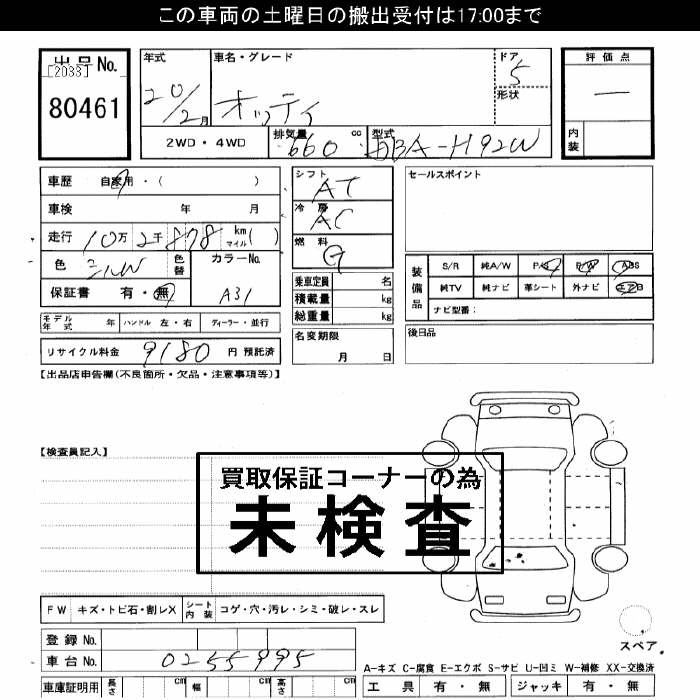 この車両の土曜日の搬出受付は17:00まで
出品No.
[2033]
80461
年式
20/2月
車名・グレード
オッティ
ドア
5
形状
評価点
―
内装
2WD・4WD
排気量 660 cc
型式 DBA-H92W
車歴 自家用・( )
車検 年 月
走行 10万2千878 km マイル( )
色 シルW
色替
カラーNo.
A31
保証書 有・無
シフト
AT
冷房
AC
燃料
G
乗車定員 名
積載量 kg
総重量 kg
名変期限
月 日
セールスポイント
装備品
S/R 純A/W P/S P/W ABS
純TV 純ナビ 革シート 外ナビ エアB
ナビ型番:
後日品
モデル年式 年 ハンドル 左・右 ディーラー・並行
リサイクル料金 9180 円 預託済
【出品店申告欄(不良箇所・欠品・注意事項等)】
【検査員記入】
買取保証コーナーの為
未検査
FW キズ・トビ石・割レX シート内装 コゲ・穴・汚レ・シミ・破レ・スレ
登録No.
車台No. 0255995
スペア
A-キズ C-腐食 E-エクボ S-サビ U-凹ミ W-補修 XX-交換済
車庫証明用 長さ cm 幅 cm 高さ cm
工具 有・無 ジャッキ 有・無